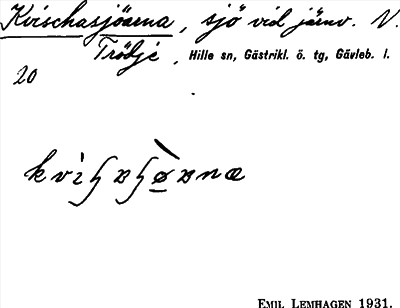 Kvischasjöarna, sjö vid järnv. N.
Trödje, Hille sn, Gästrikl. ö. tg, Gävleb. l.
20
EMIL LEMHAGEN 1931.